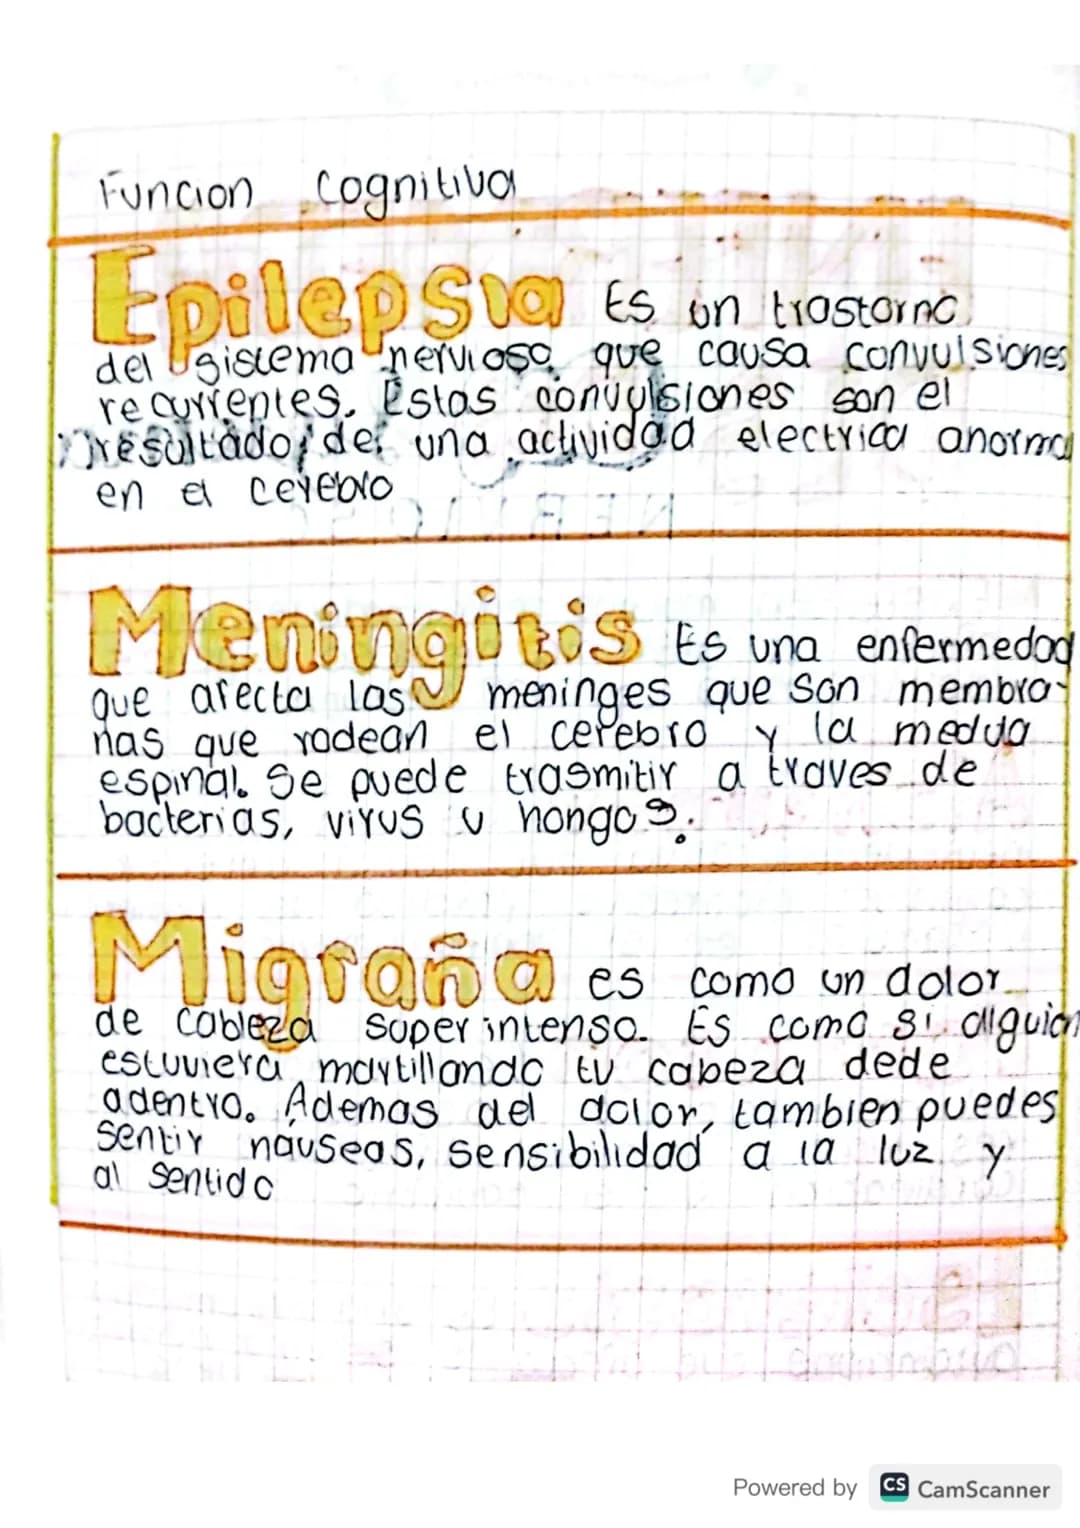 Funcion Cognitiva
Epilepsia Es un trastorno
del sistema nervioso que causa convulsiones
recurrentes. Estas convulsiones son el
resultado de una actividad electrica anormal
en el cerebro
Meningitis Es una enfermedad
que afecta las meninges que son membra-
nas que rodean el cerebro y la medula
espinal. Se puede trasmitir a traves de
bacterias, virus u hongos.
Migraña es como un dolor
de cabeza super intenso. Es como si alguien
estuviera martillando tu cabeza dede
adentro. Ademas del dolor, tambien puedes
sentir náuseas, sensibilidad a la luz y
al sentido
Powered by CS CamScanner